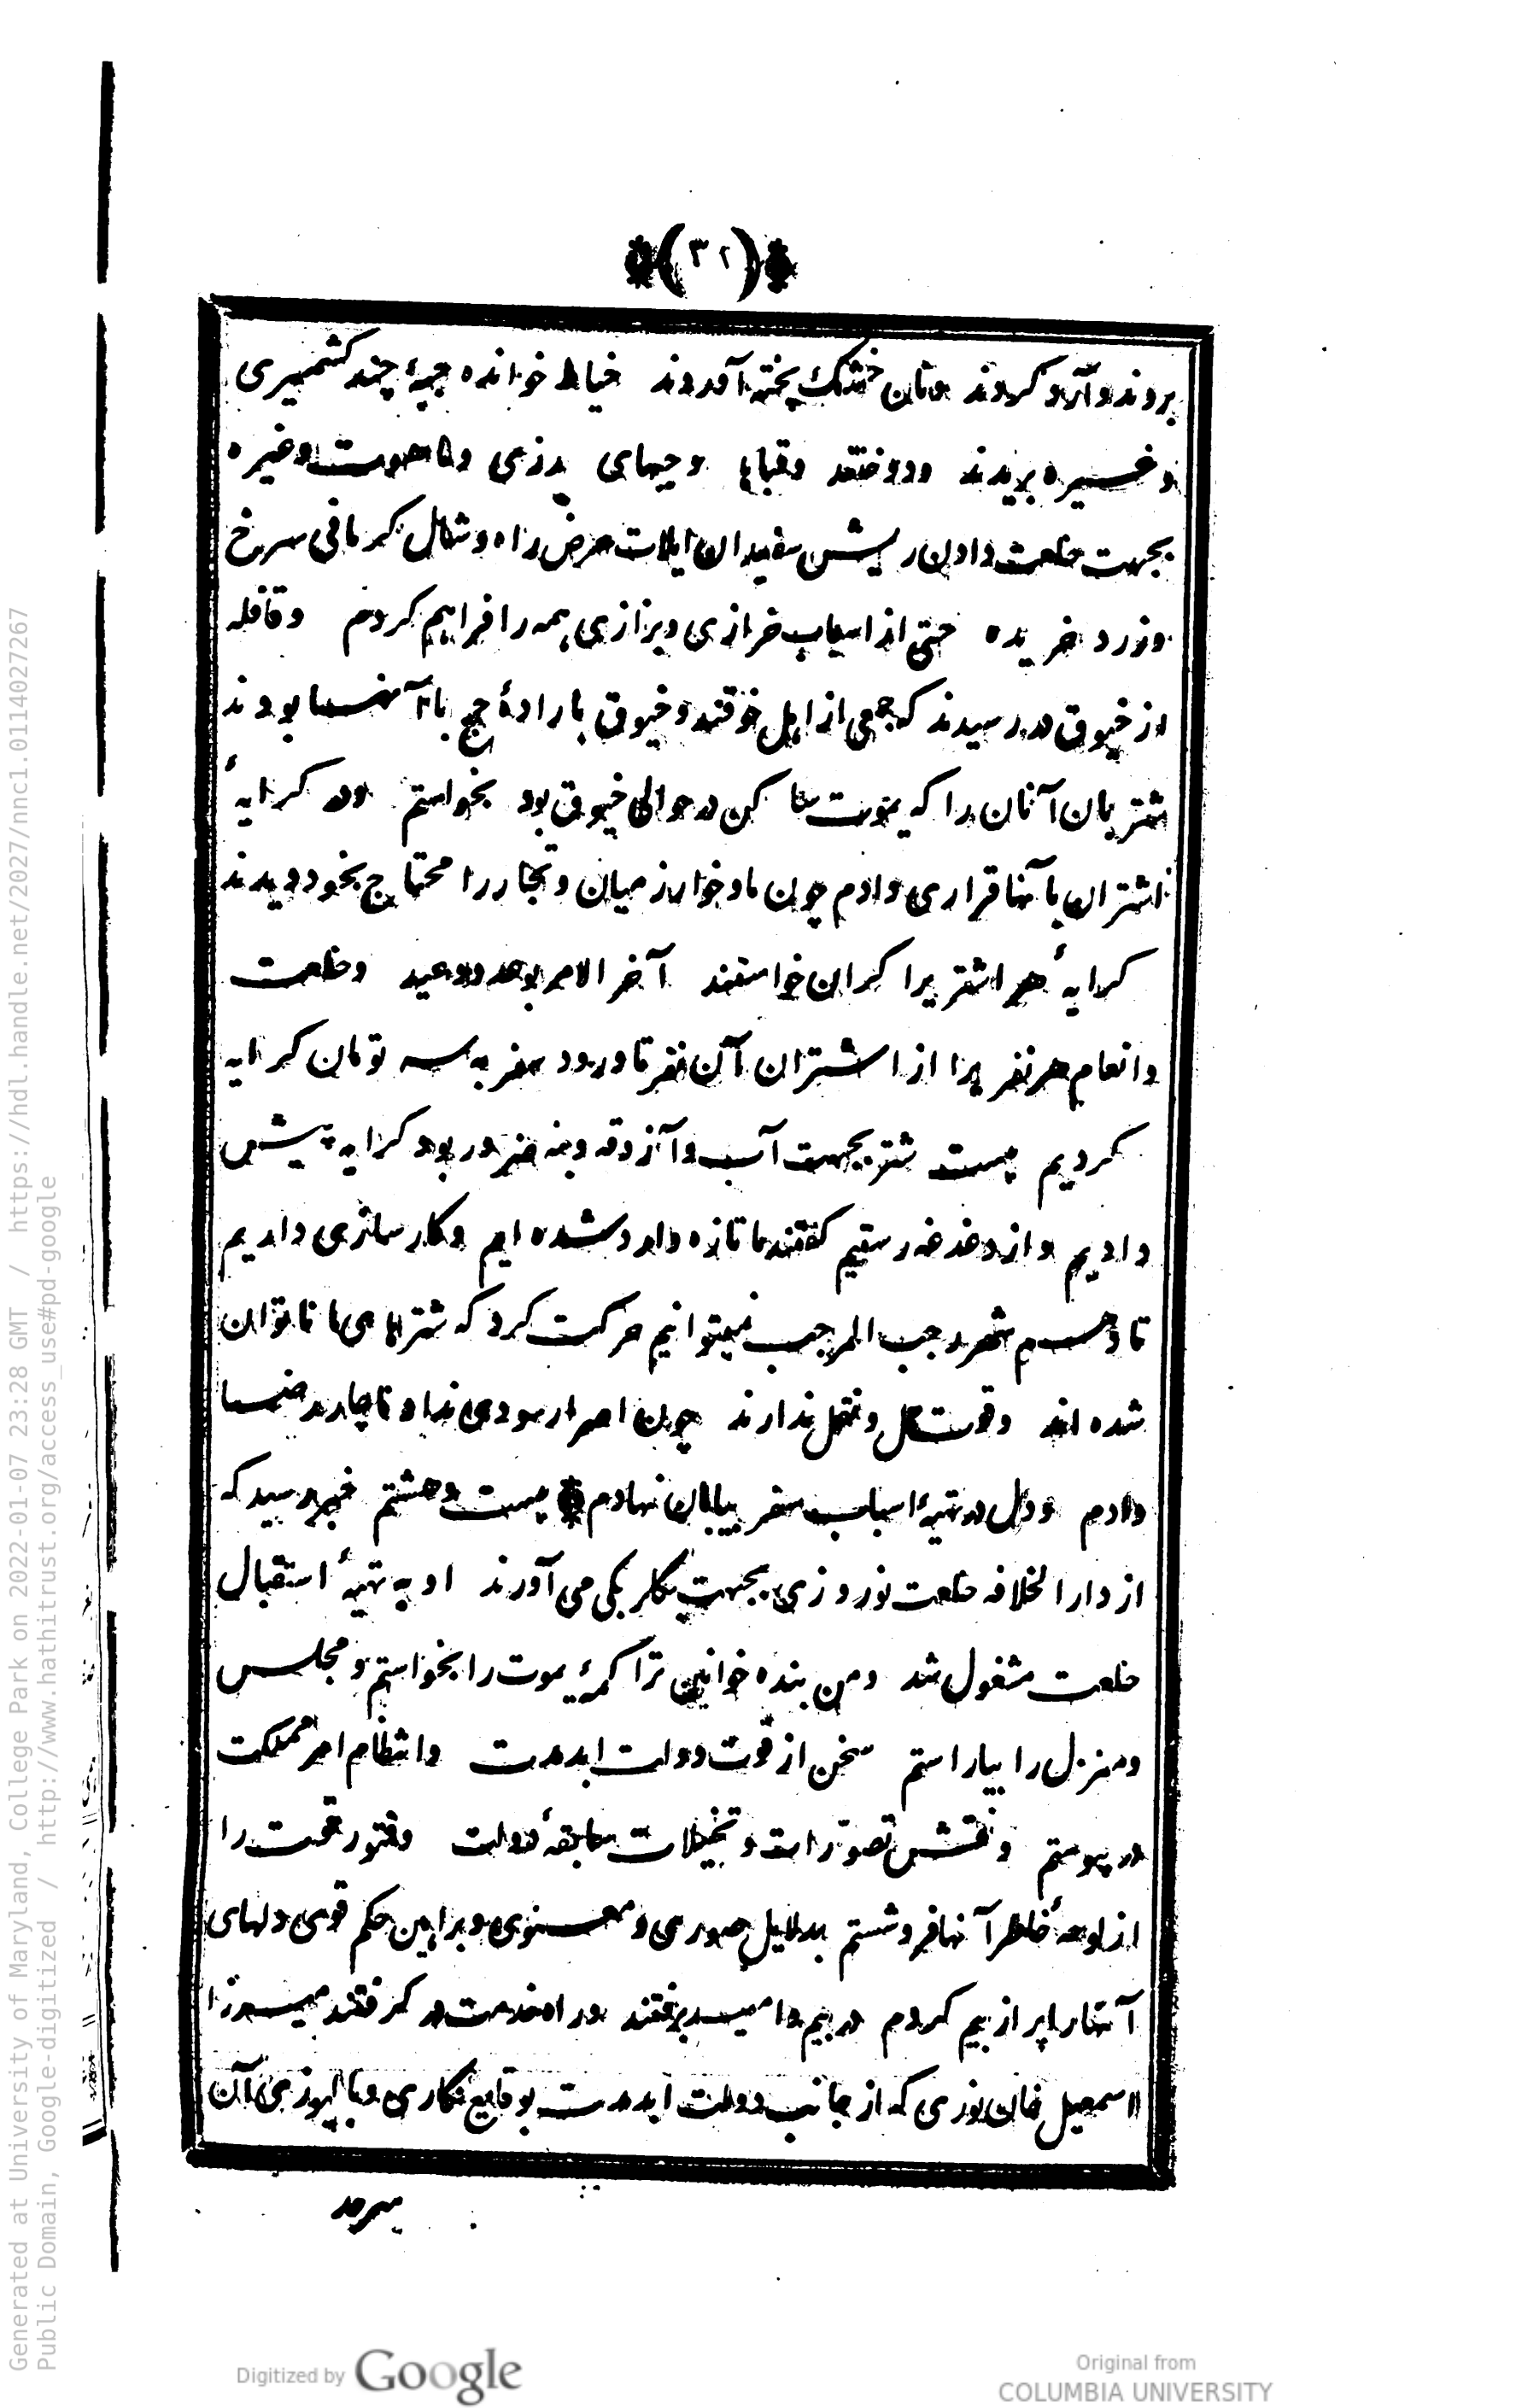 ﴿(۳۲)﴾
بردند و آرد کردند و نان خشک پخته آوردند خیاط خوانده جبهٔ چند کشمیری
و غیره بریدند و دوختند و قباها و جبهای یزدی و ماهوت و غیره
بجهت خلعت دادن ریش سفیدان ایلات عرض راه و شال کرمانی سرخ
و زرد خریده حتی از اسباب خرازی و بزازی همه را فراهم کردم و قافله
از خیوق در رسیدند که جمعی از اهل خوقند و خیوق باراده حج با آنها بودند
شتربان آنان را که یموت ساکن در حوالی خیوق بود بخواستم و در کرایهٔ
اشتران با آنها قراری دادم چون ما و خوارزمیان و تجار را محتاج بخود دیدند
کرایهٔ هر اشتریرا کران خواستند آخر الامر بوعد و وعید و خلعت
و انعام هر نفریرا از اشتران آن نفر تا ورود سفر به سه تومان کرایه
کردیم بیست شتر بجهت آب و آزوقه و بنه ضرور بود کرایه پیش
دادیم و از دغدغه رستیم کفتند ما تازه وارد شده ایم و کارسازی داریم
تا دهم شهر رجب المرجب نمیتوانیم حرکت کرد که شترهای ما ناتوان
شده اند و قوت حمل و نقل ندارند چون اصرار سودی نداد ناچار رضا
دادم و دل در تهیهٔ اسباب سفر بیابان نهادم ﴿ بیست و هشتم خبر رسید که
از دار الخلافه خلعت نوروزی بجهت بیکلربیکی می آورند او به تهیهٔ استقبال
خلعت مشغول شد و من بنده خوانین تراکمهٔ یموت را بخواستم و مجلس
و منزل را بیاراستم سخن از قوت دولت ابدمدت و انتظام امر مملکت
در پیوستم و نقش تصورات و تخیلات سابقهٔ دولت و فتور همت را
از لوحهٔ خاطر آنها فرو شستم بدلایل صوری و معنوی و براهین حکم قوی دلهای
آنها را پر از بیم کردم در بیم و امید برفتند و راه خدمت در کرفتند میرزا
اسمعیل خان نوری که از جانب دولت ابدمدت بوقایع نکاری و بالیوزی آن
سرحد
Generated at University of Maryland, College Park on 2022-01-07 23:28 GMT / https://hdl.handle.net/2027/nnc1.0114027267
Public Domain, Google-digitized / http://www.hathitrust.org/access_use#pd-google
Digitized by Google
Original from
COLUMBIA UNIVERSITY